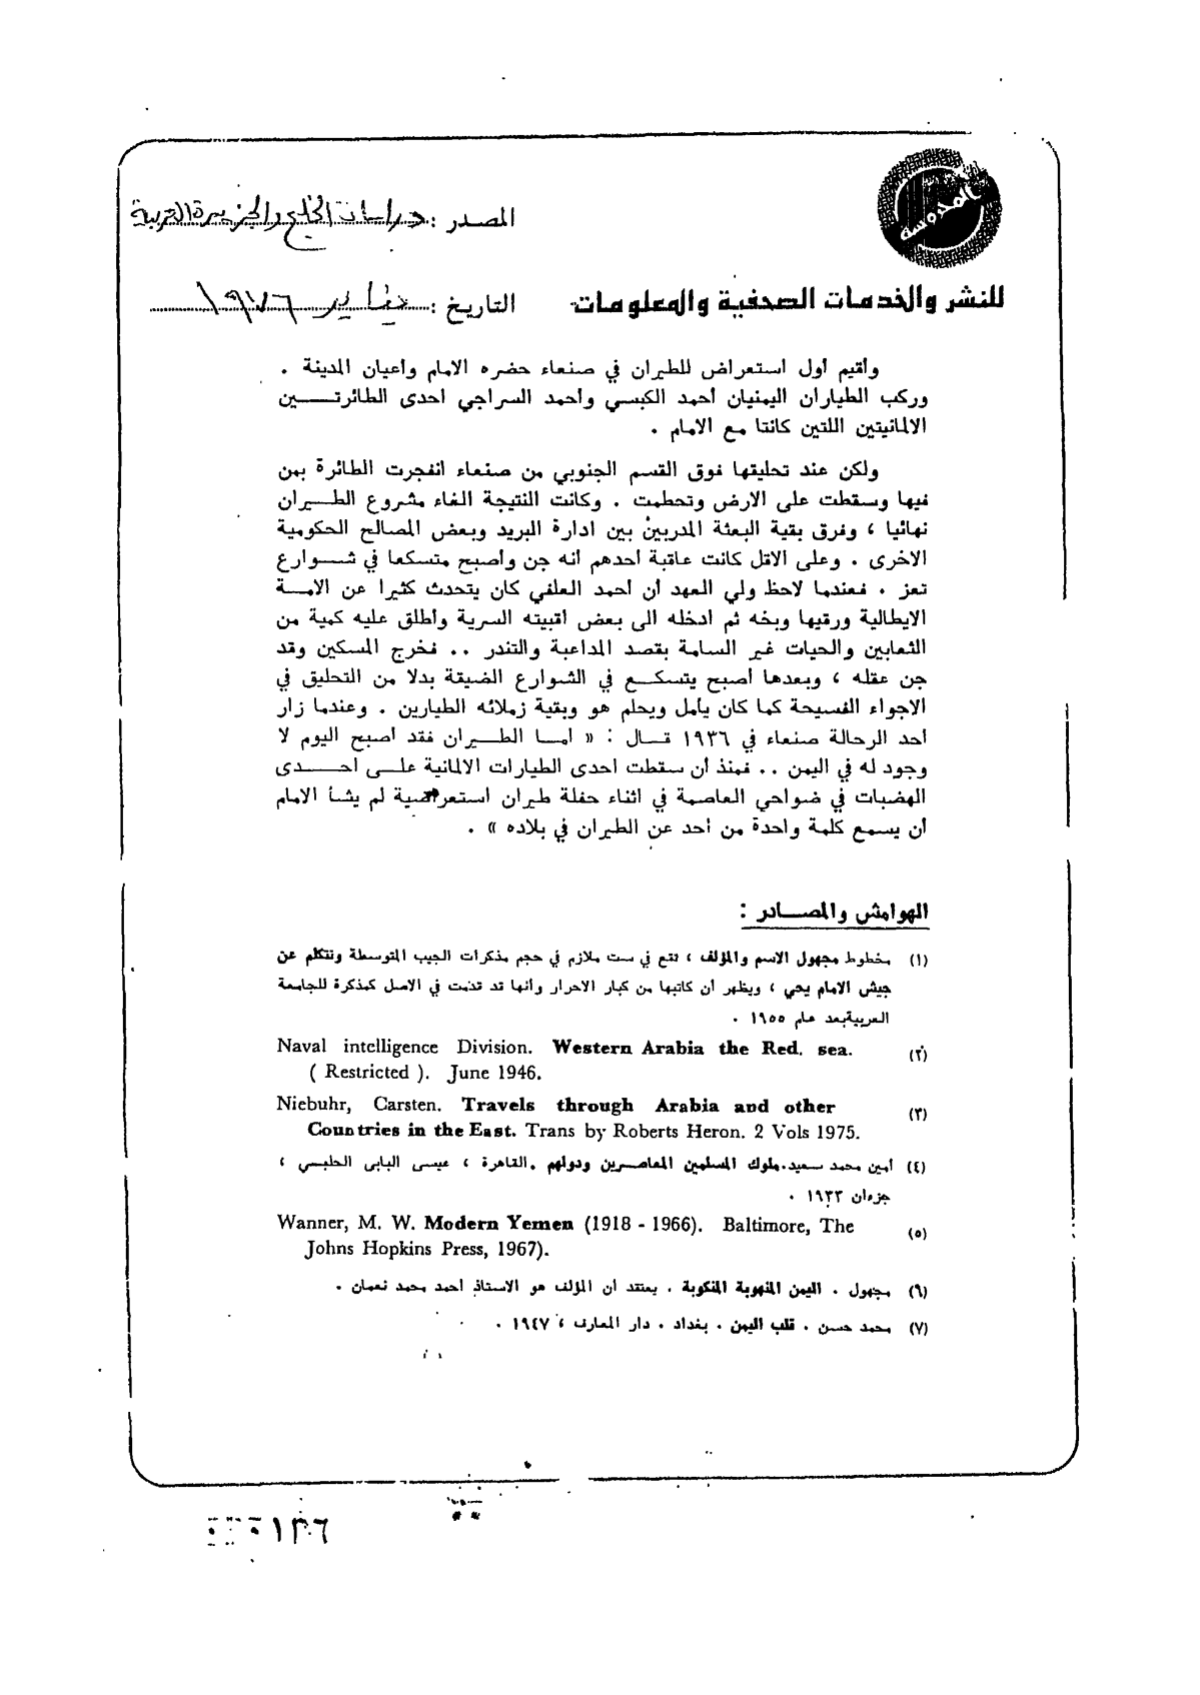 المدوسه
المصدر : دراسات الخليج والجزيرة العربية
للنشر والخدمات الصحفية والمعلومات
التاريخ : يناير ١٩٧٦
وأقيم أول استعراض للطيران في صنعاء حضره الامام وأعيان المدينة .
وركب الطياران اليمنيان أحمد الكبسي وأحمد السراجي احدى الطائرتـــــين
الالمانيتين اللتين كانتا مع الامام .
ولكن عند تحليقها فوق القسم الجنوبي من صنعاء انفجرت الطائرة بمن
فيها وسقطت على الارض وتحطمت . وكانت النتيجة الغاء مشروع الطــيران
نهائيا ، وفرق بقية البعثة المدربين بين ادارة البريد وبعض المصالح الحكومية
الاخرى . وعلى الاقل كانت عاقبة احدهم أنه جن وأصبح متسكعا في شـــوارع
تعز . فعندما لاحظ ولي العهد أن أحمد العلفي كان يتحدث كثيرا عن الامـــة
الايطالية ورقيها وبخه ثم ادخله الى بعض اقبيته السرية وأطلق عليه كمية من
الثعابين والحيات غير السامة بقصد المداعبة والتندر .. فخرج المسكين وقد
جن عقله ، وبعدها أصبح يتسكــع في الشوارع الضيقة بدلا من التحليق في
الاجواء الفسيحة كما كان يأمل ويحلم هو وبقية زملائه الطيارين . وعندما زار
احد الرحالة صنعاء في ١٩٣٦ قــال : « امــا الطــيران فقد اصبح اليوم لا
وجود له في اليمن .. فمنذ أن سقطت احدى الطيارات الالمانية علــى احــــدى
الهضبات في ضواحي العاصمة في اثناء حفلة طيران استعراضية لم يشأ الامام
أن يسمع كلمة واحدة من أحد عن الطيران في بلاده » .
الهوامش والمصــادر :
(١) مخطوط مجهول الاسم والمؤلف ، تقع في ست ملازم في حجم مذكرات الجيب المتوسطة وتتكلم عن
جيش الامام يحي ، ويظهر أن كاتبها من كبار الاحرار وأنها قد قدمت في الاصل كمذكرة للجامعة
العربيةبعد عام ١٩٥٥ .
(٢) Naval intelligence Division. Western Arabia the Red. sea.
( Restricted ). June 1946.
(٣) Niebuhr, Carsten. Travels through Arabia and other
Countries in the East. Trans by Roberts Heron. 2 Vols 1975.
(٤) أمين محمد سعيد.ملوك المسلمين المعاصرين ودولهم .القاهرة ، عيسى البابى الحلبسي ،
جزءان ١٩٣٣ .
(٥) Wanner, M. W. Modern Yemen (1918 - 1966). Baltimore, The
Johns Hopkins Press, 1967).
(٦) مجهول . اليمن المنهوبة المنكوبة . يعتقد أن المؤلف هو الاستاذ احمد محمد نعمان .
(٧) محمد حسن . قلب اليمن . بغداد . دار المعارف ، ١٩٤٧ .